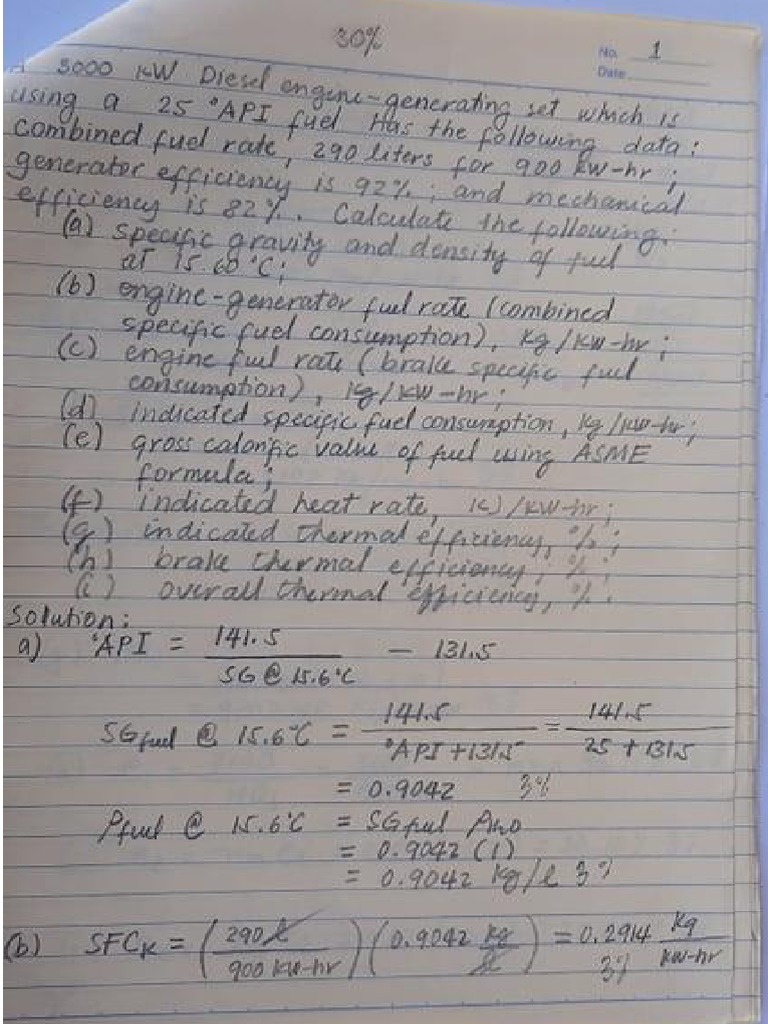 30%
No. 1
Date
3000 KW Diesel engine-generating set which is
using a 25 °API fuel has the following data:
combined fuel rate, 290 liters for 900 kw-hr;
generator efficiency is 92%; and mechanical
efficiency is 82%. Calculate the following:
(a) specific gravity and density of fuel
at 15.60°C;
(b) engine-generator fuel rate (combined
specific fuel consumption), kg/kw-hr;
(c) engine fuel rate (brake specific fuel
consumption), kg/kw-hr;
(d) indicated specific fuel consumption, kg/kw-hr;
(e) gross calorific value of fuel using ASME
formula;
(f) indicated heat rate, KJ/kw-hr;
(g) indicated thermal efficiency, %;
(h) brake thermal efficiency; %;
(i) overall thermal efficiency, %.
Solution:
a) °API = 141.5 / SG @ 15.6°C - 131.5
SG fuel @ 15.6°C = 141.5 / °API + 131.5 = 141.5 / 25 + 131.5
= 0.9042 3%
ρfuel @ 15.6°C = SG fuel ρH2O
= 0.9042 (1)
= 0.9042 kg/l 3%
(b) SFCK = (290 l / 900 kw-hr) (0.9042 kg / l) = 0.2914 kg / kw-hr
3%